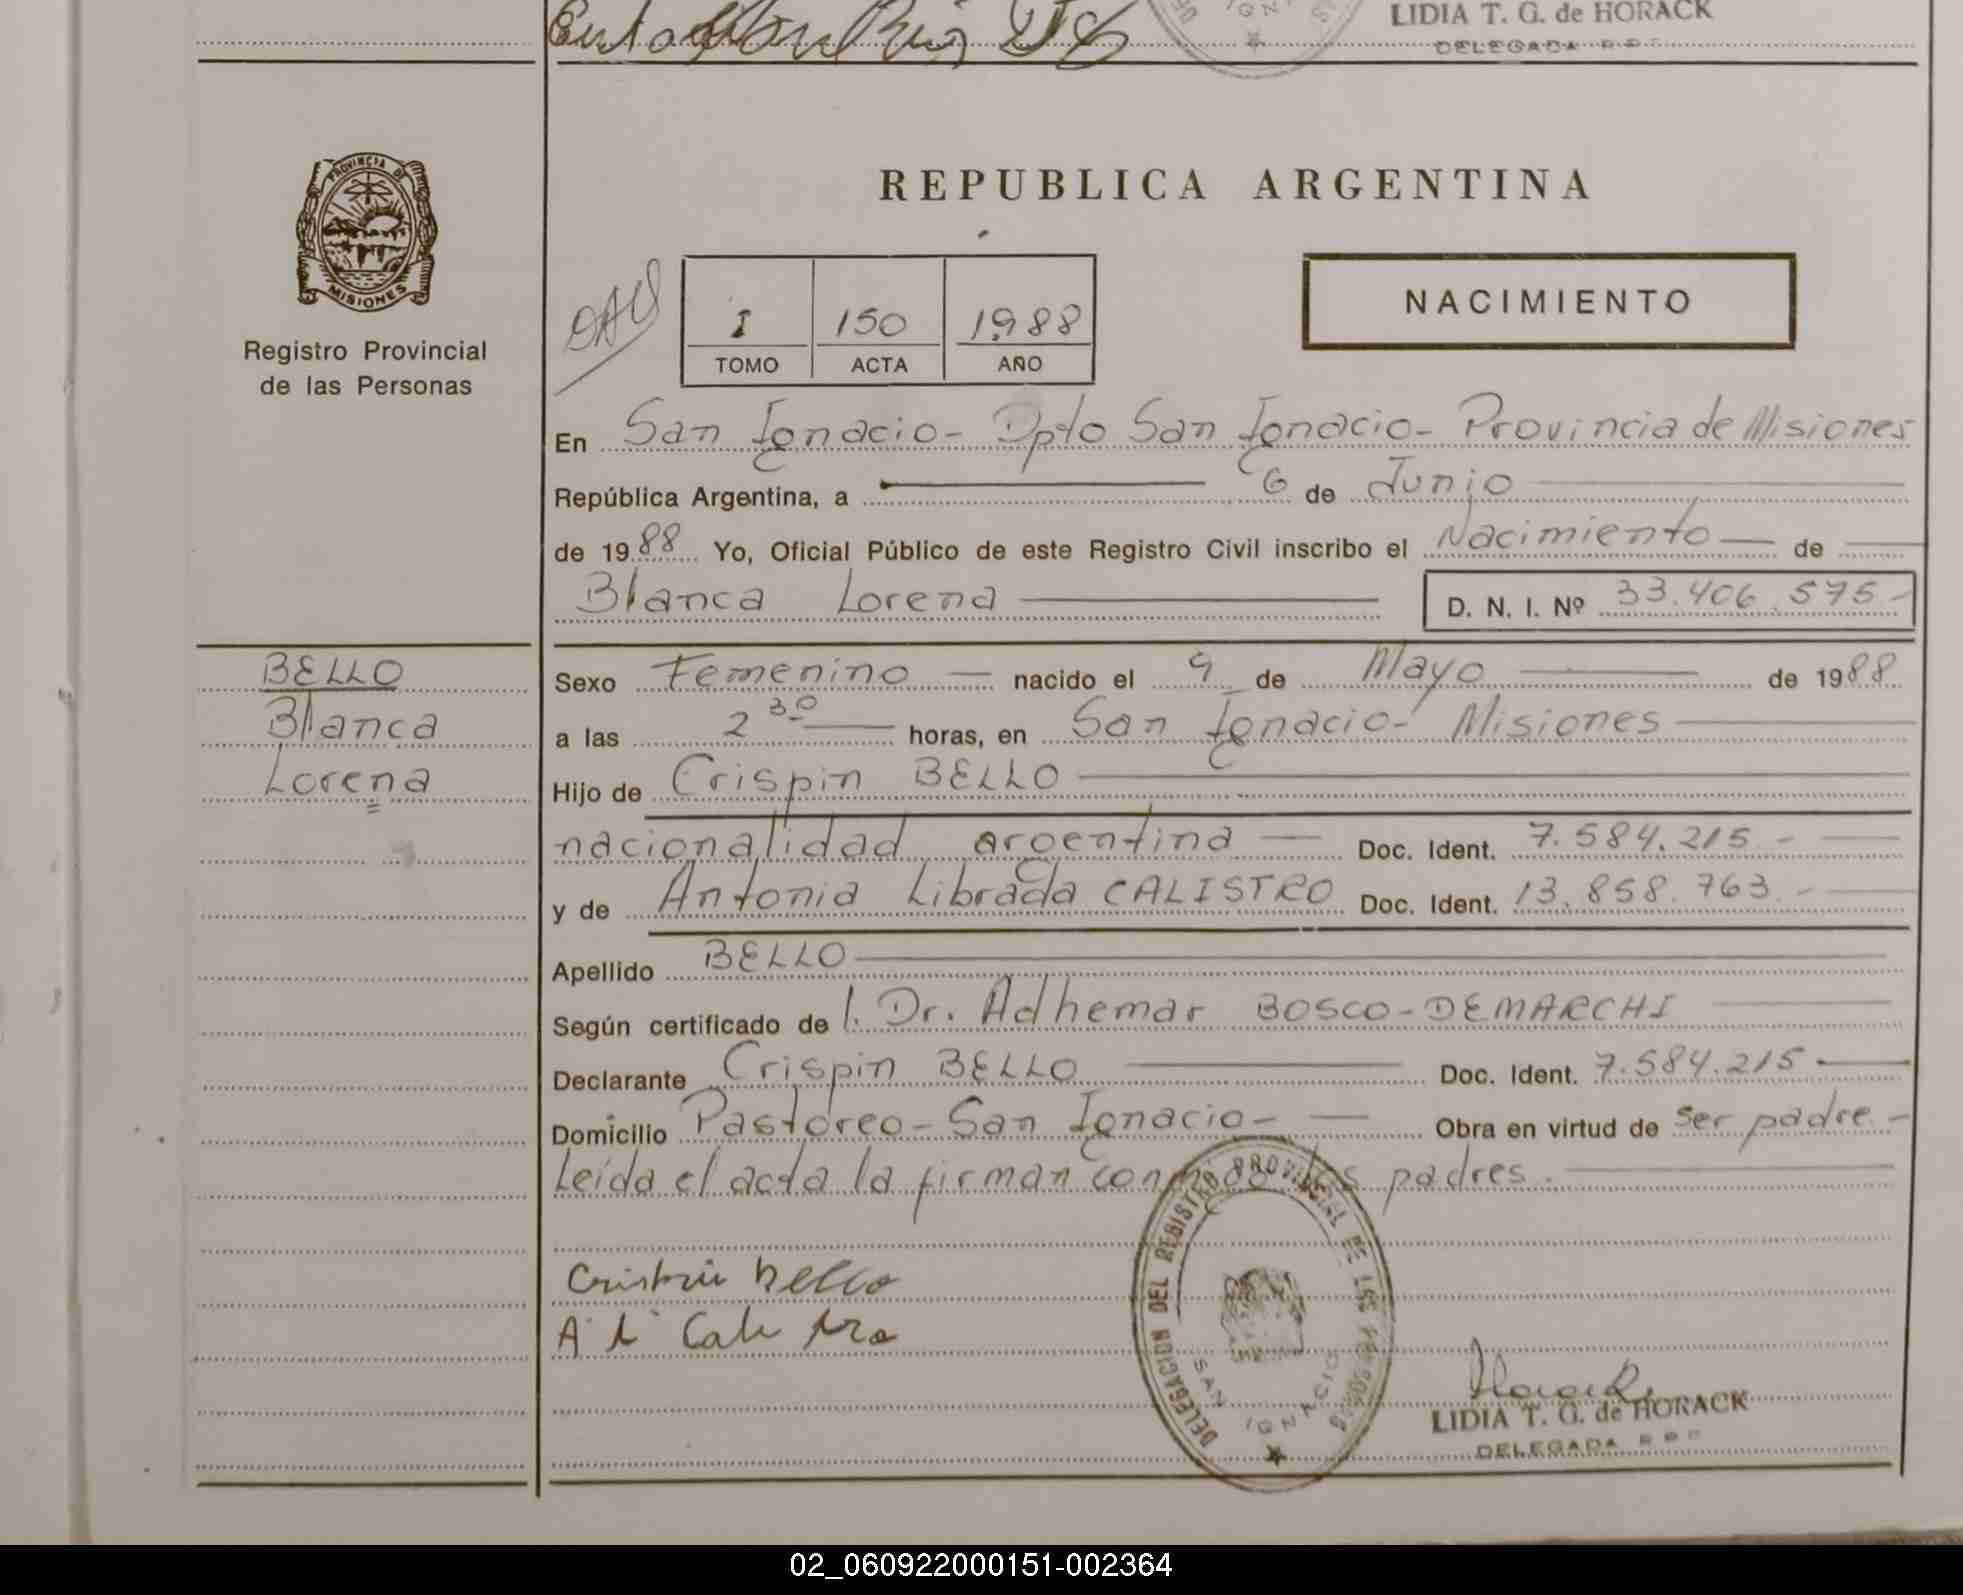 LIDIA T. G. de HORACK
DELEGADA R P P
PROVINCIA DE
MISIONES
Registro Provincial
de las Personas
REPUBLICA ARGENTINA
NACIMIENTO
I 150 1988
TOMO ACTA AÑO
En San Ignacio - Dpto San Ignacio - Provincia de Misiones
República Argentina, a 6 de Junio
de 1988 Yo, Oficial Público de este Registro Civil inscribo el Nacimiento de
Blanca Lorena D. N. I. Nº 33.406.575-
BELLO
Blanca
Lorena
Sexo Femenino nacido el 9 de Mayo de 1988
a las 2 30 horas, en San Ignacio - Misiones
Hijo de Crispin BELLO
nacionalidad argentina Doc. Ident. 7.584.215.-
y de Antonia Librada CALISTRO Doc. Ident. 13.858.763.-
Apellido BELLO
Según certificado de l. Dr. Adhemar BOSCO-DEMARCHI
Declarante Crispin BELLO Doc. Ident. 7.584.215
Domicilio Pastoreo - San Ignacio - Obra en virtud de ser padre -
Leída el acta la firman conmigo los padres.
DELEGACION DEL REGISTRO PROVINCIAL DE LAS PERSONAS
SAN IGNACIO
Crispin Bello
A L Calistro
Horack
LIDIA T. G. de HORACK
DELEGADA R P P
02_060922000151-002364